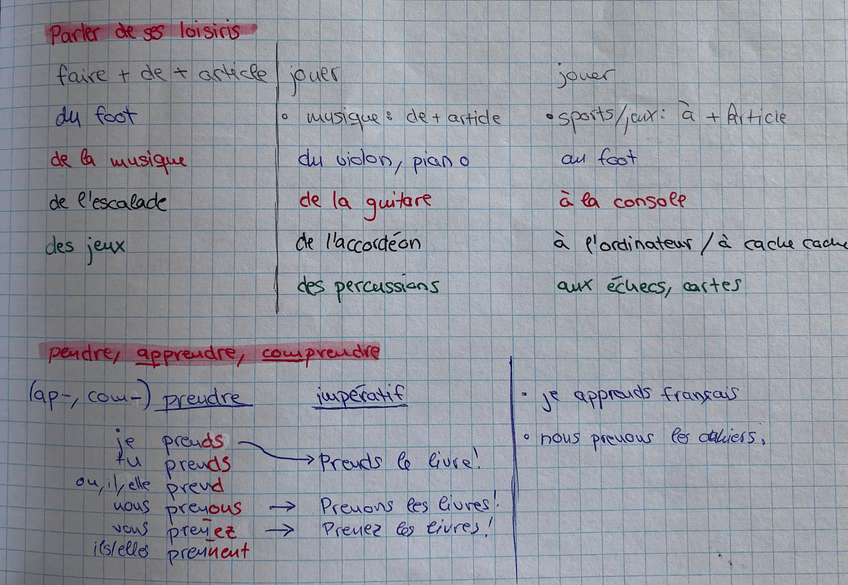 Parler de ses loisiris
faire + de + article
du foot
de la musique
de l'escalade
des jeux
jouer
• musique: de + article
du violon, piano
de la guitare
de l'accordéon
des percussions
jouer
• sports/jeux: à + Article
au foot
à la console
à l'ordinateur / à cache cache
aux échecs, cartes
pendre, apprendre, comprendre
(ap-, com-) prendre
je prends
tu prends
on, il, elle prend
nous prenons
vous prenez
ils/elles prennent
impératif
→ Prends le livre!
→ Prenons les livres!
→ Prenez les livres!
• je apprends français
• nous prenons les cahiers.